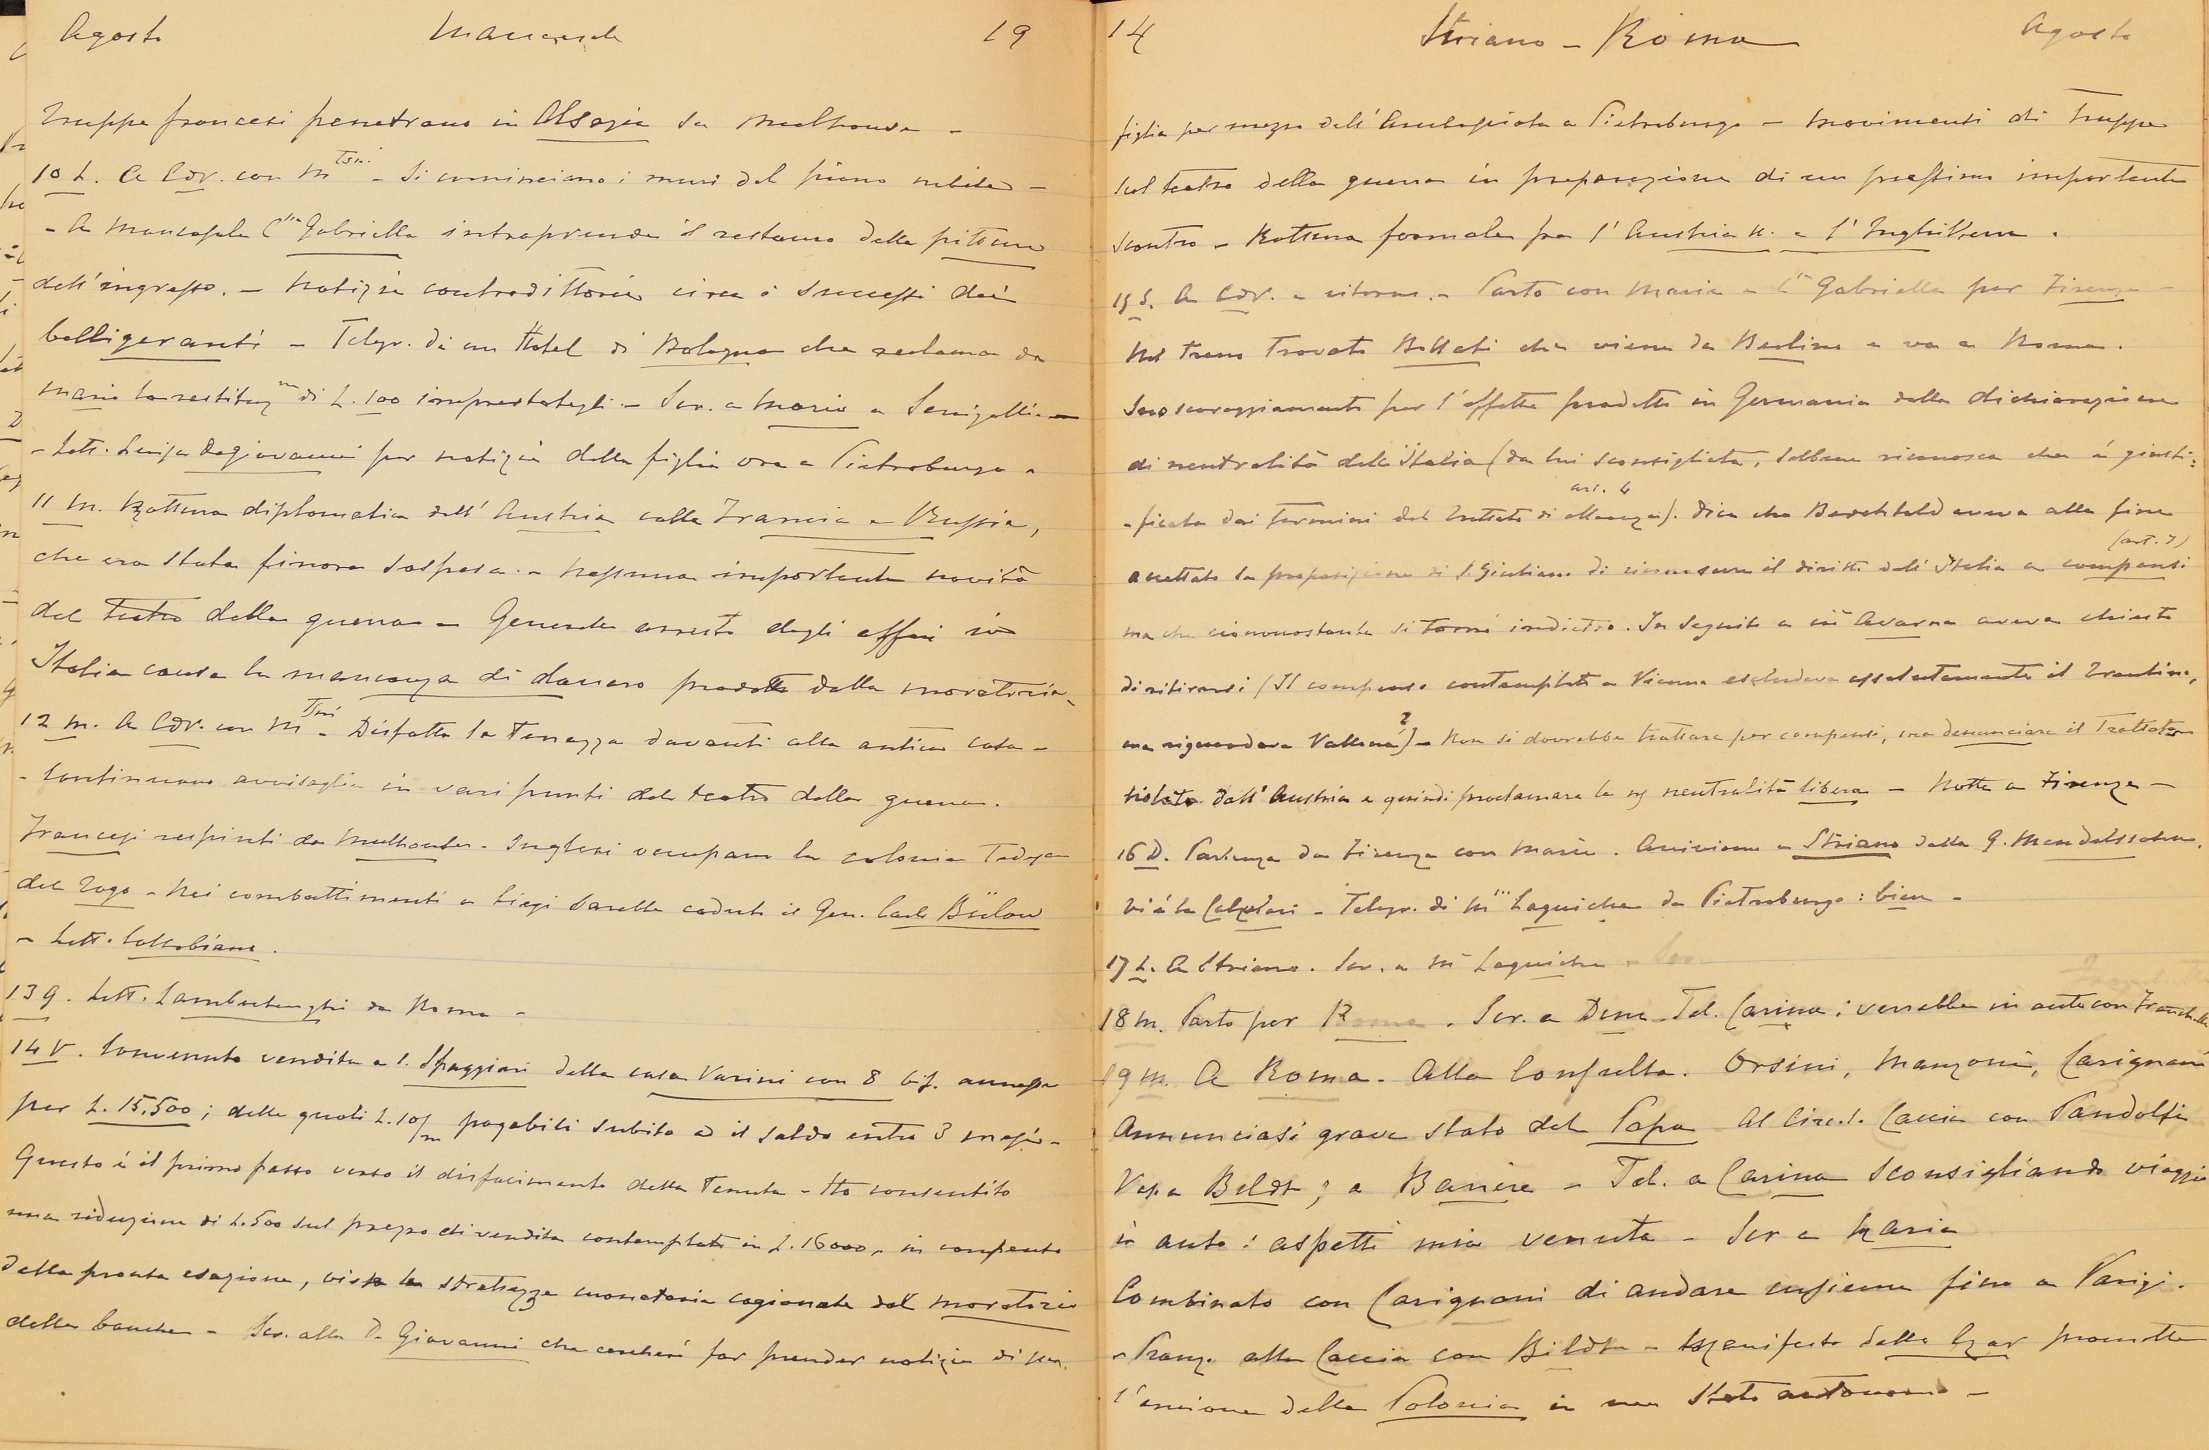 Agosto Mancasale 19
truppe francesi penetrano in Alsazia da Mulhouse -
10 L. A Cdv. con M Tini - Si cominciano i muri del piano nobile -
- A Mancasale C.ssa Gabriella intraprende il restauro della pittura
dell'ingresso. - Notizie contradittorie circa i successi dei
belligeranti - Telegr. di un Hotel di Bologna che reclama da
Mario la restituz.ne di L. 100 imprestategli - Scr. a Mario a Senigallia -
- Lett. Luisa Degiovanni per notizie della figlia ora a Pietroburgo -
11 M. Rottura diplomatica dell'Austria colla Francia e Russia,
che era stata finora sospesa. - Nessuna importante novità
del teatro della guerra - Generale arresto degli affari in
Italia causa la mancanza di danaro prodotta dalla moratoria -
12 M. A Cdv. con M Tini - Disfatta la terrazza davanti alla antica casa -
- Continuano avvisaglie in vari punti del teatro della guerra.
Francesi respinti da Mulhouse - Inglesi occupano la colonia Tedesca
del Togo - Nei combattimenti a Liegi sarebbe caduto il Gen. Carlo Bülow
- Lett. Collobiano.
13 G. Lett. Lambertenghi da Roma -
14 V. Convenuto vendita a S. Spaggiari della casa Varini con 8 bif. annesse
per L. 15.500; delle quali L. 10/m pagabili subito ed il saldo entro 3 mesi -
Questo è il primo passo verso il disfacimento della Tenuta - Ho consentito
una riduzione di L. 500 sul prezzo di vendita contemplato in L. 16000, in compenso
della pronta esazione, vista la strettezza monetaria cagionata dal moratorio
delle banche - Scr. alla D. Giovanni che cercherò far prender notizie di sua
14 Striano - Roma Agosto
figlia per mezzo dell'Ambasciata a Pietroburgo - Movimenti di truppe
sul teatro della guerra in preparazione di un prossimo importante
scontro - Rottura formale fra l'Austria U. e l'Inghilterra.
15 S. A Cdv. e ritorno. - Parto con Maria e C.ssa Gabriella per Firenze -
Nel treno trovato Bollati che viene da Berlino e va a Roma.
Suo scoraggiamento per l'effetto prodotto in Germania dalla dichiarazione
di neutralità dell'Italia (da lui sconsigliata, sebbene riconosca che è giusti-
-ficata dai termini del trattato di alleanza art. 4). Dice che Berchtold aveva alla fine
accettato la proposizione di S. Giuliano di riconoscere il diritto dell'Italia a compensi (art. 7)
ma che ciononostante si tornò indietro. In seguito a ciò Avarna aveva chiesto
di ritirarsi (Il compenso contemplato a Vienna escludeva assolutamente il Trentino,
ma riguardava Vallona?) - Non si dovrebbe trattare per compensi, ma denunciare il Trattato
violato dall'Austria e quindi proclamare la ns neutralità libera - Notte a Firenze -
16 D. Partenza da Firenze con Maria. Arriviamo a Striano dalla G. Mendelssohn.
Vi è la - Telegr. di M.me Laguiche da Pietroburgo: bien -
17 L. A Striano. Scr. a M. Laguiche
18 M. Parto per Roma. Scr. a Dene - Tel. Carina: verrebbe in auto con
19 M. A Roma. Alla Consulta. Orsini, Manzoni, Carignani
Annunciasi grave stato del Papa Al Circ. d. Caccia con Pandolfi
Vesp a Bildt; a Barrère - Tel. a Carina sconsigliando viaggio
in auto: aspetti mia venuta - Scr a Maria
Combinato con Carignani di andare insieme fino a Parigi.
- Pranzo alla Caccia con Bildt - Manifesto dello Czar promette
l'unione della Polonia in uno Stato autonomo -